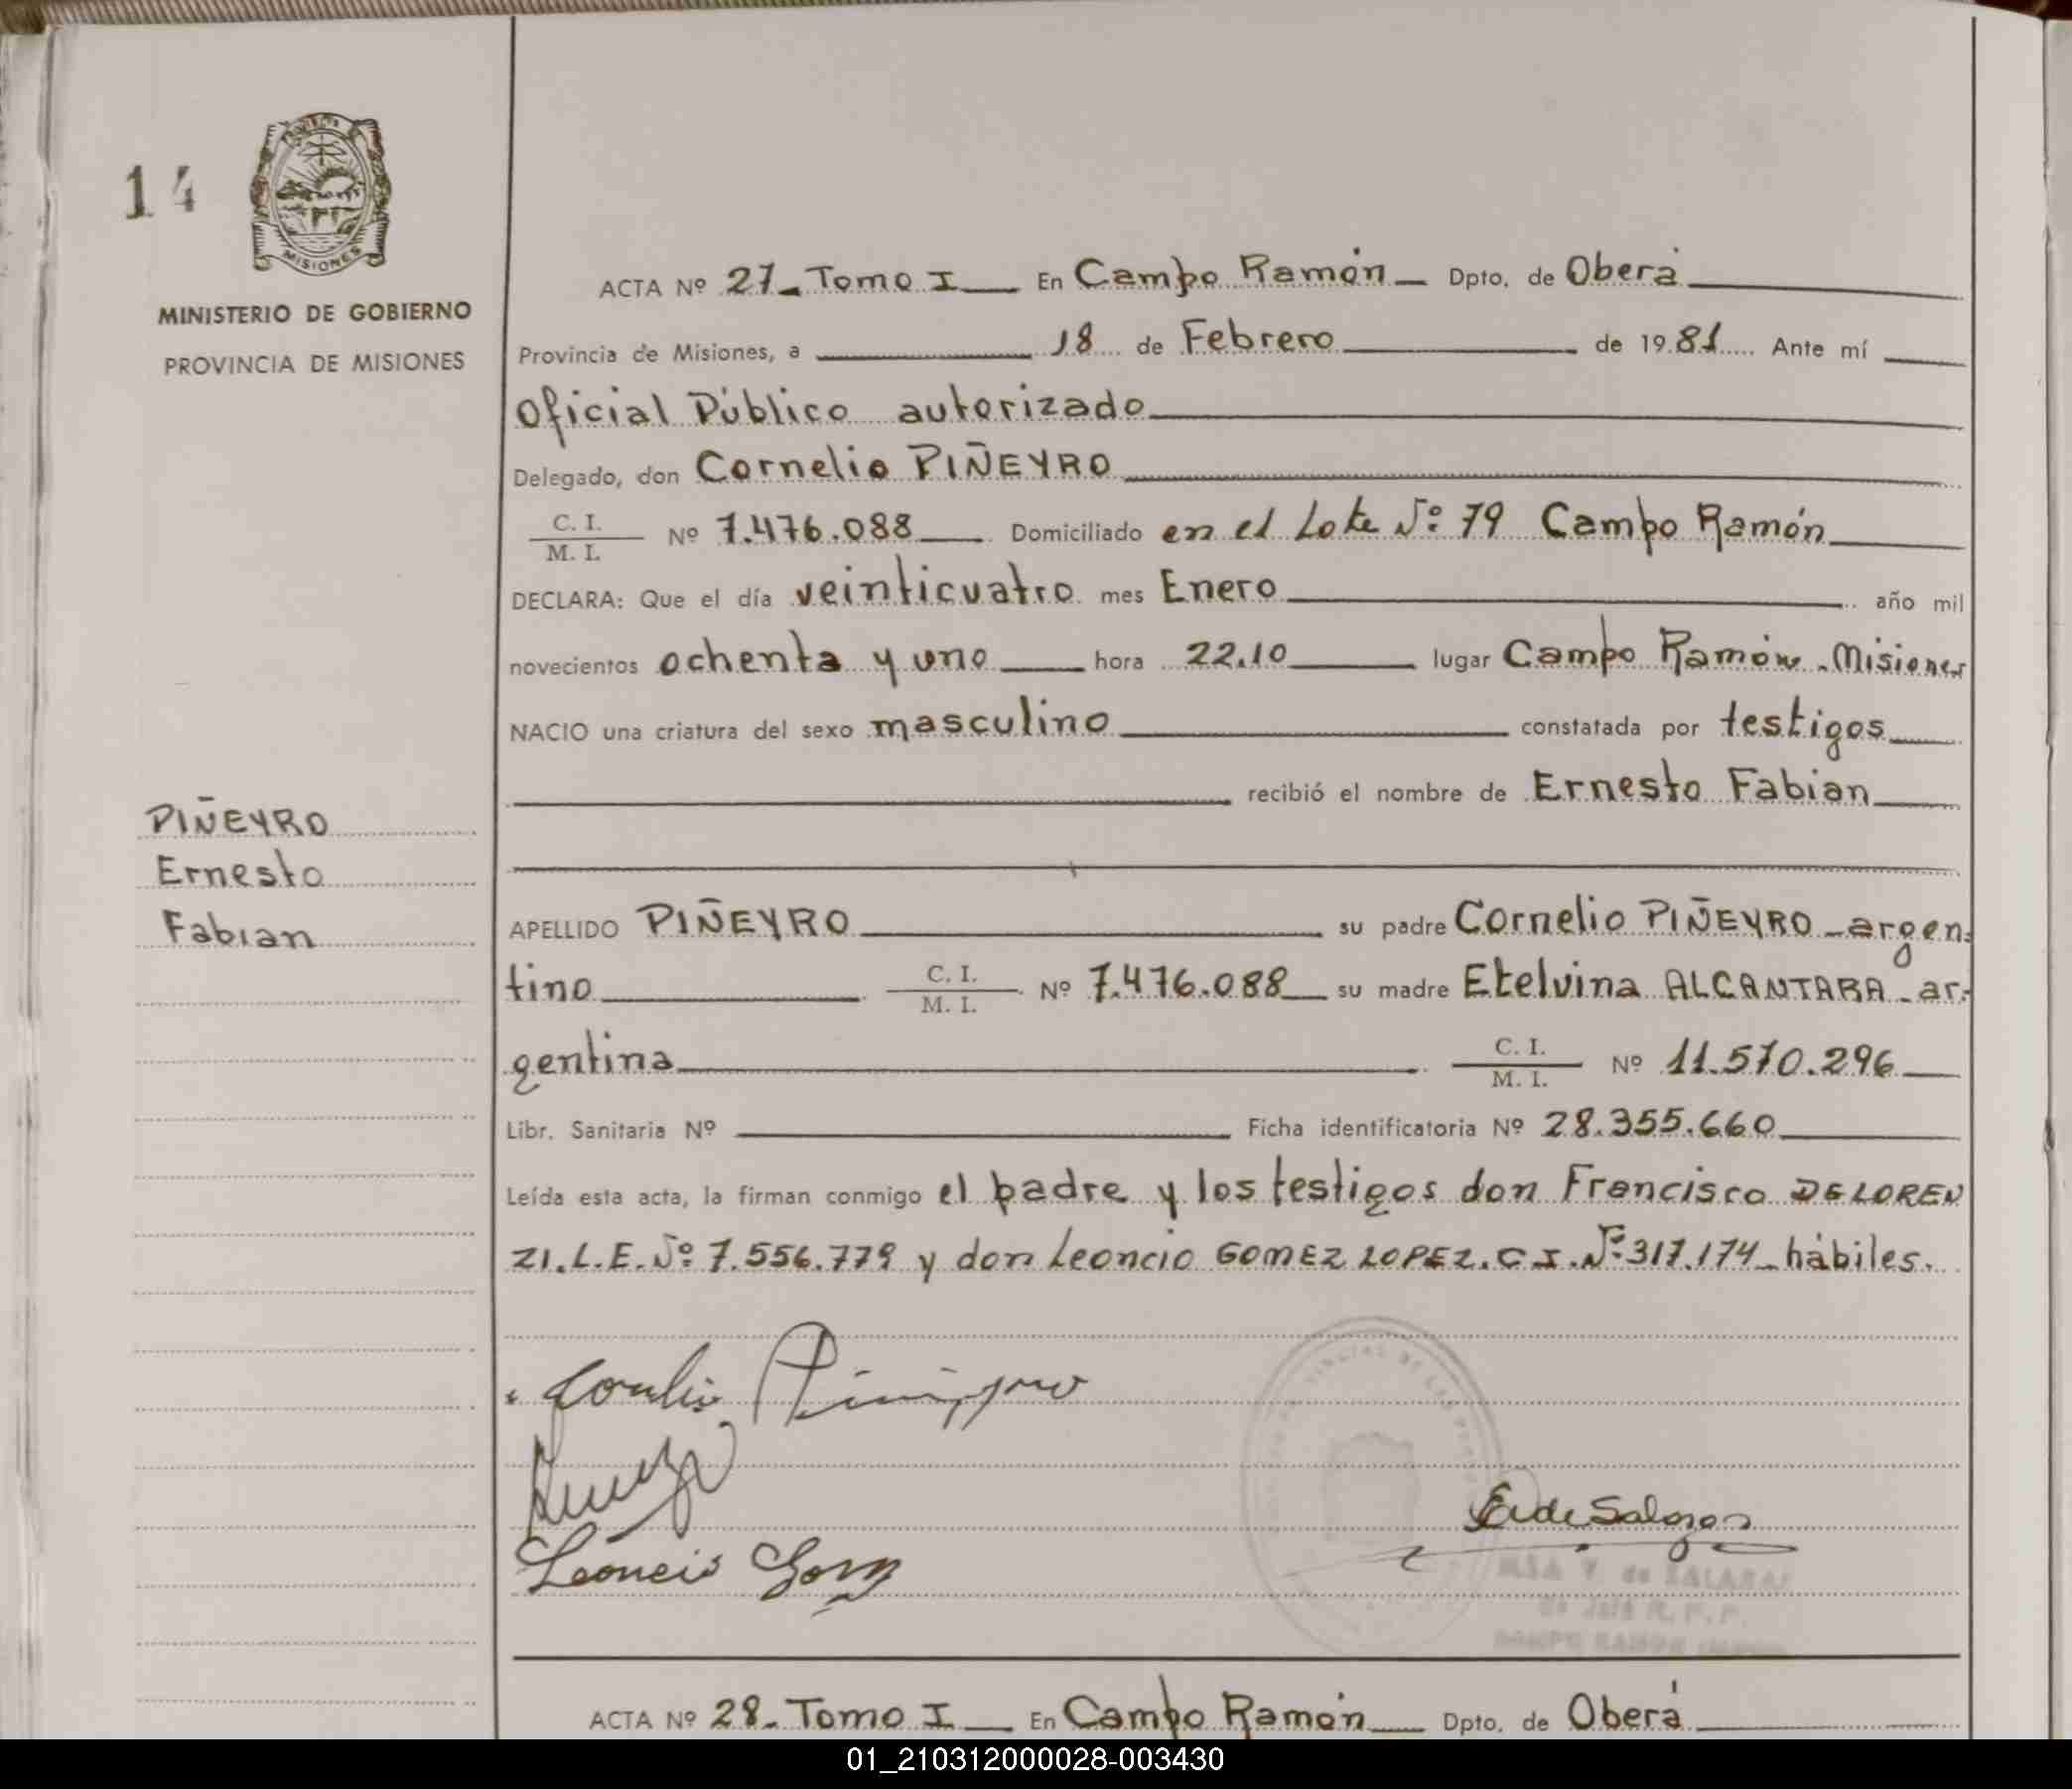 14
MISIONES
MINISTERIO DE GOBIERNO
PROVINCIA DE MISIONES
ACTA Nº 27_ Tomo I En Campo Ramón Dpto. de Oberá
Provincia de Misiones, a 18 de Febrero de 1981 Ante mí
Oficial Público autorizado
Delegado, don Cornelio PIÑEYRO
C. I.
M. I. Nº 7.476.088 Domiciliado en el Lote Nº 79 Campo Ramón
DECLARA: Que el día veinticuatro mes Enero año mil
novecientos ochenta y uno hora 22.10 lugar Campo Ramón - Misiones
NACIO una criatura del sexo masculino constatada por testigos
recibió el nombre de Ernesto Fabian
PIÑEYRO
Ernesto
Fabian
APELLIDO PIÑEYRO su padre Cornelio PIÑEYRO - argen-
tino C. I. M. I. Nº 7.476.088 su madre Etelvina ALCANTARA - ar-
gentina C. I. M. I. Nº 11.570.296
Libr. Sanitaria Nº Ficha identificatoria Nº 28.355.660
Leída esta acta, la firman conmigo el padre y los testigos don Francisco DELOREN
ZI. L.E. Nº 7.556.779 y don Leoncio GOMEZ LOPEZ. C.I. Nº 317.174 hábiles.
Leoncio
de SALAZAR
ACTA Nº 28_ Tomo I En Campo Ramón Dpto. de Oberá
01_210312000028-003430